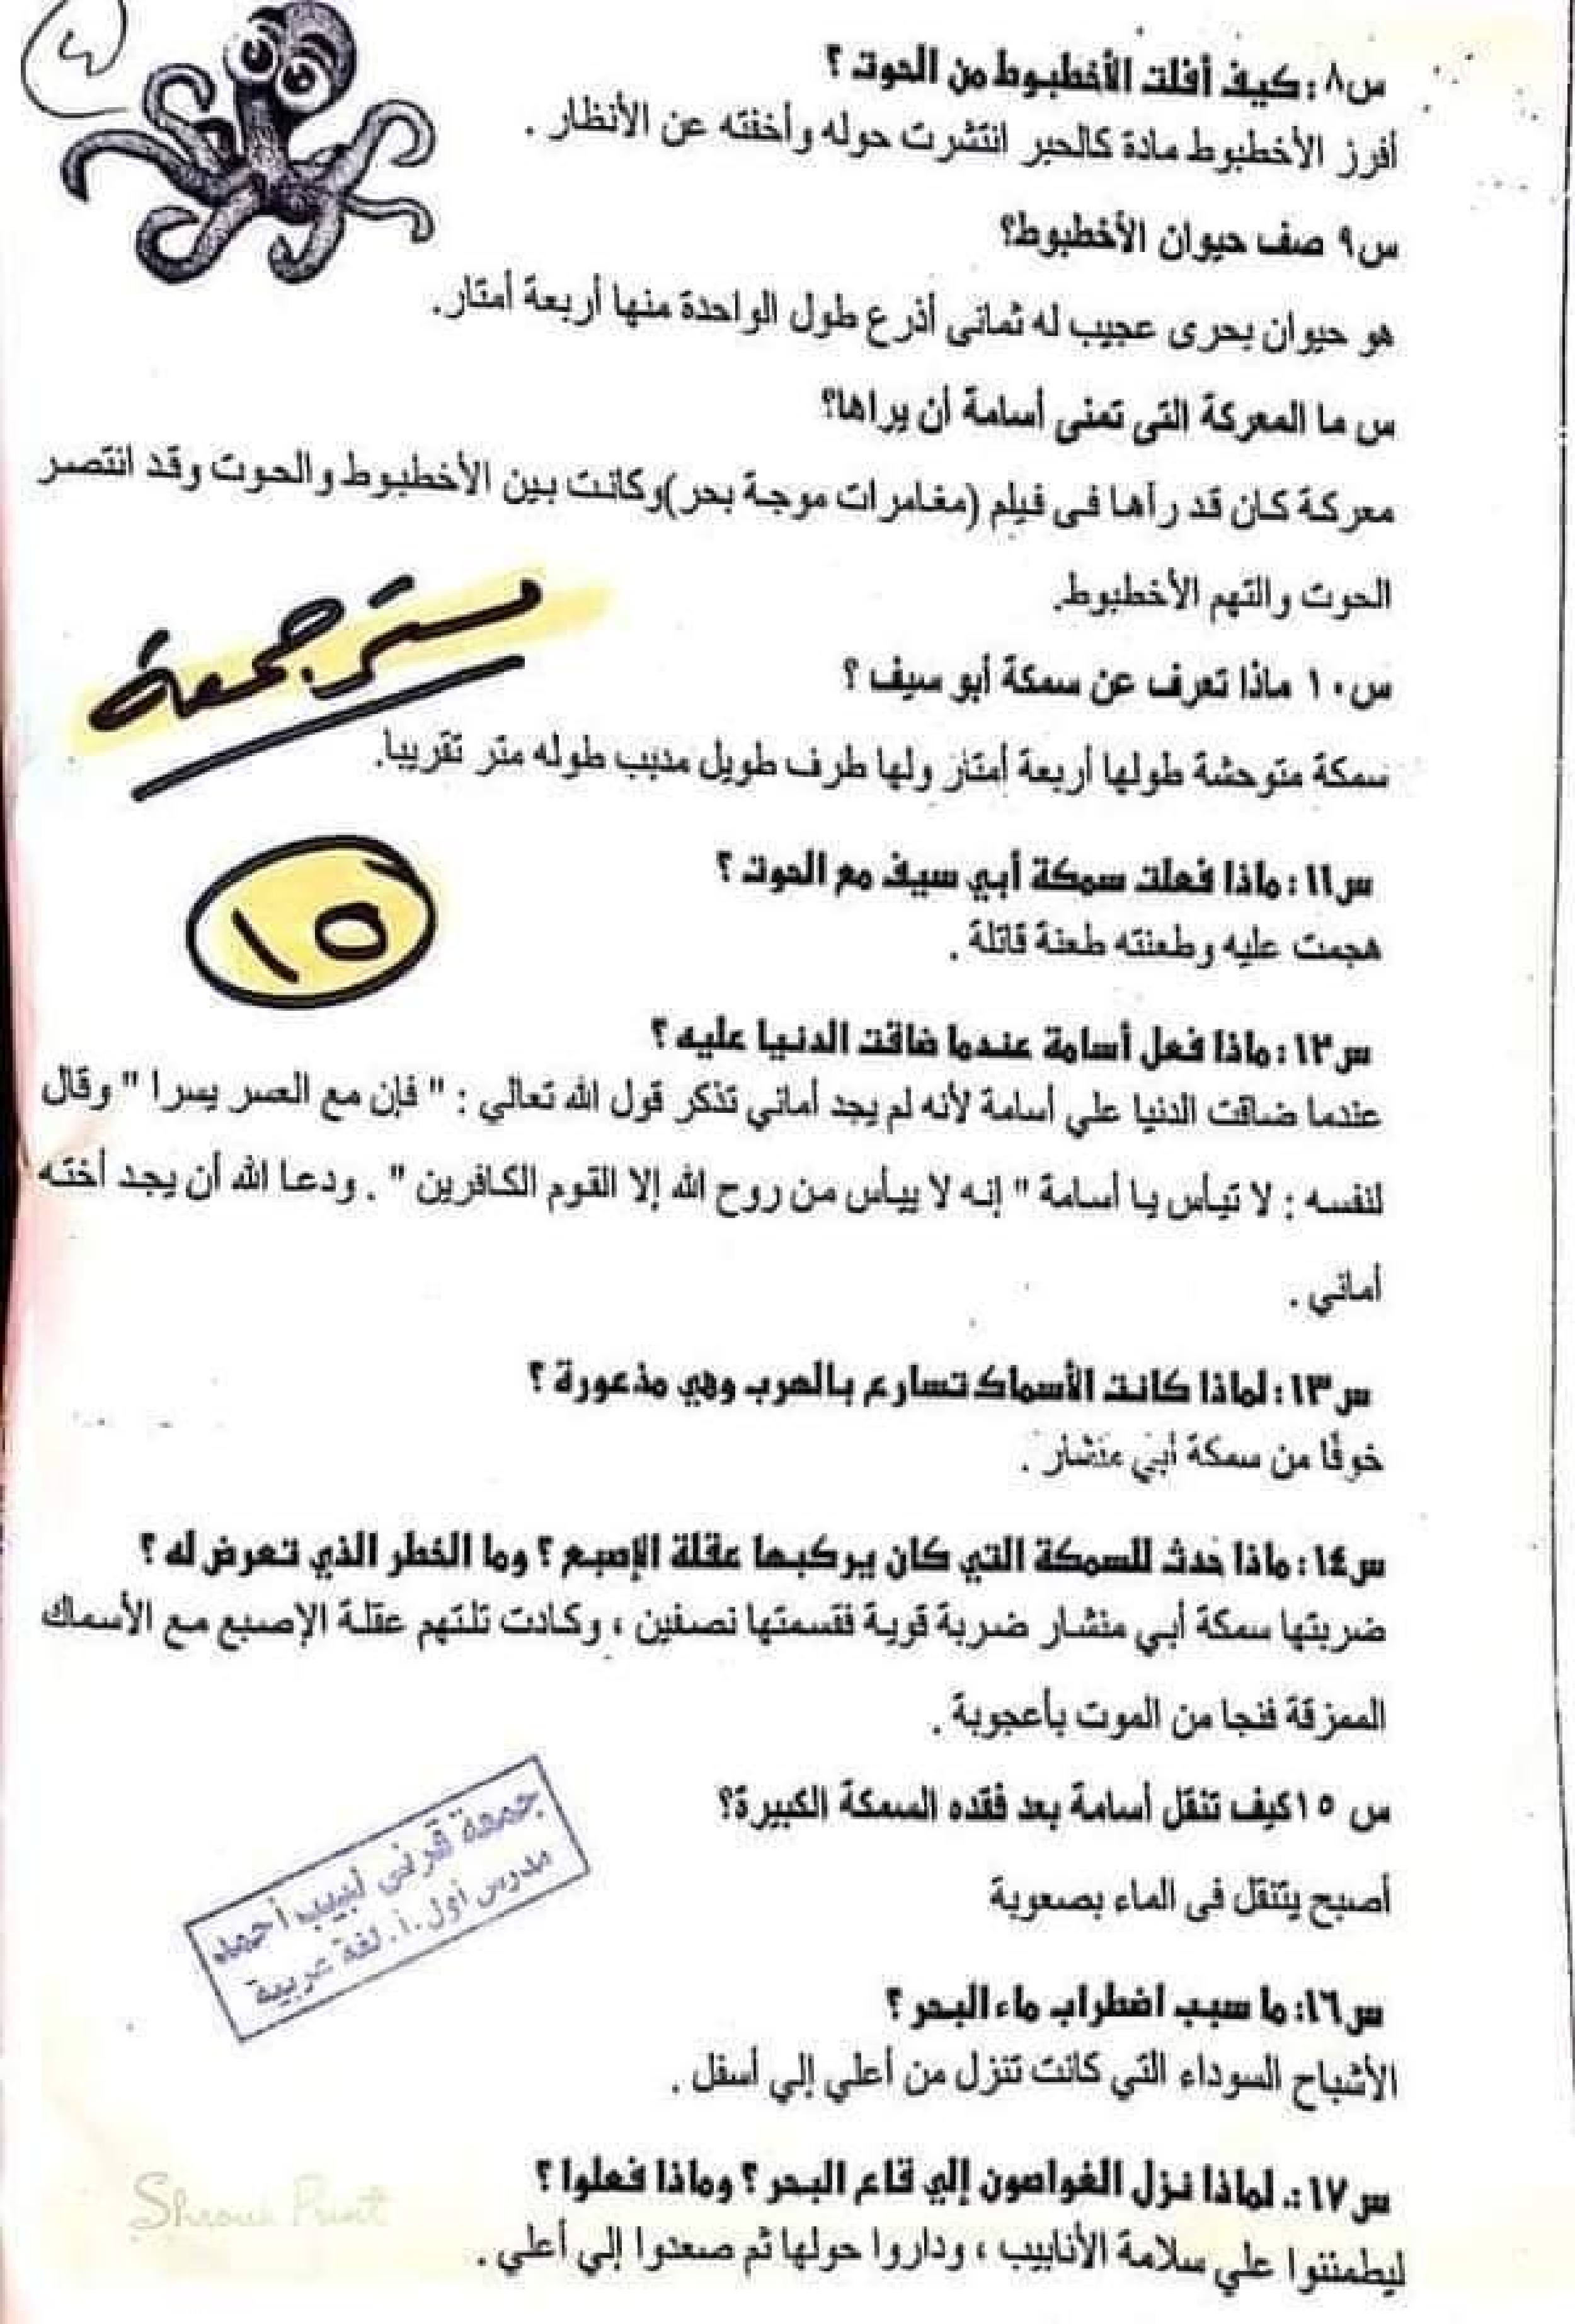 ٤
س٨ : كيف أفلت الأخطبوط من الحوت ؟
أفرز الأخطبوط مادة كالحبر انتشرت حوله وأخفته عن الأنظار .
س٩ صف حيوان الأخطبوط؟
هو حيوان بحرى عجيب له ثمانى أذرع طول الواحدة منها أربعة أمتار.
س ما المعركة التى تمنى أسامة أن يراها؟
معركة كان قد رآها فى فيلم (مغامرات موجة بحر)وكانت بين الأخطبوط والحوت وقد انتصر
الحوت والتهم الأخطبوط.
مستر جمعة
س١٠ ماذا تعرف عن سمكة أبو سيف ؟
سمكة متوحشة طولها أربعة أمتار ولها طرف طويل مدبب طوله متر تقريبا.
١٥
س١١ : ماذا فعلت سمكة أبي سيف مع الحوت ؟
هجمت عليه وطعنته طعنة قاتلة .
س١٢ : ماذا فعل أسامة عندما ضاقت الدنيا عليه ؟
عندما ضاقت الدنيا علي أسامة لأنه لم يجد أماني تذكر قول الله تعالي : " فإن مع العسر يسرا " وقال
لنفسه : لا تيأس يا أسامة " إنه لا ييأس من روح الله إلا القوم الكافرين " . ودعا الله أن يجد أخته
أماني .
س١٣ : لماذا كانت الأسماك تسارع بالهرب وهي مذعورة ؟
خوفًا من سمكة أبي منشار .
س١٤ : ماذا حدث للسمكة التي كان يركبها عقلة الإصبع ؟ وما الخطر الذي تعرض له ؟
ضربتها سمكة أبي منشار ضربة قوية فقسمتها نصفين ، وكادت تلتهم عقلة الإصبع مع الأسماك
الممزقة فنجا من الموت بأعجوبة .
س ١٥كيف تنقل أسامة بعد فقده السمكة الكبيرة؟
أصبح يتنقل فى الماء بصعوبة
جمعة قرني لبيب أحمد
مدرس أول .أ. لغة عربية
س١٦: ما سبب اضطراب ماء البحر ؟
الأشباح السوداء التي كانت تنزل من أعلي إلي أسفل .
س١٧ :. لماذا نزل الغواصون إلي قاع البحر ؟ وماذا فعلوا ؟
ليطمئنوا علي سلامة الأنابيب ، وداروا حولها ثم صعدوا إلي أعلي .
Print